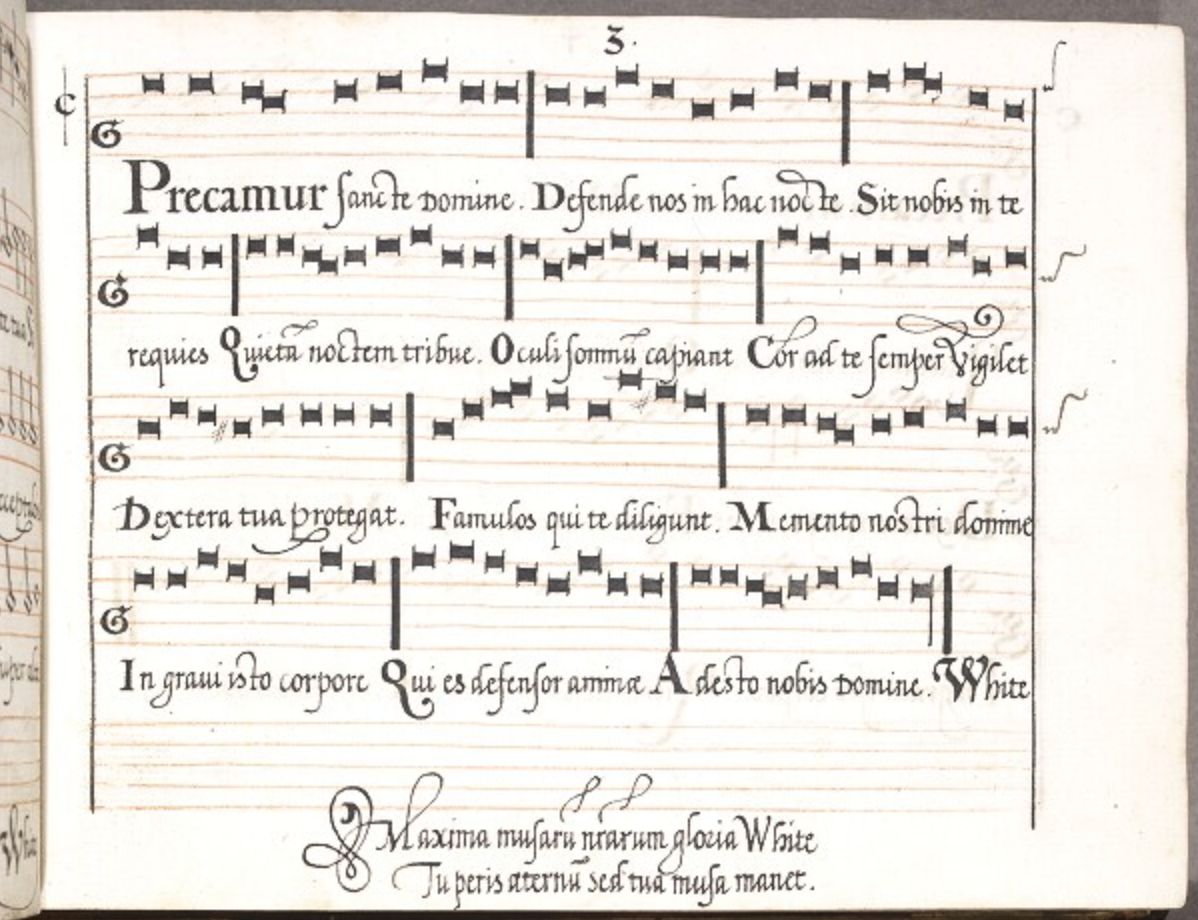 3.
C
G
Precamur sancte Domine. Defende nos in hac nocte. Sit nobis in te
G
requies Quietā noctem tribue. Oculi somnū capiant Cor ad te semper Vigilet
G
Dextera tua protegat. Famulos qui te diligunt. Memento nostri domine
G
In graui isto corpore Qui es defensor animæ Adesto nobis Domine. White
Maxima musarū nrarum gloria White
Tu peris æternū sed tua musa manet.